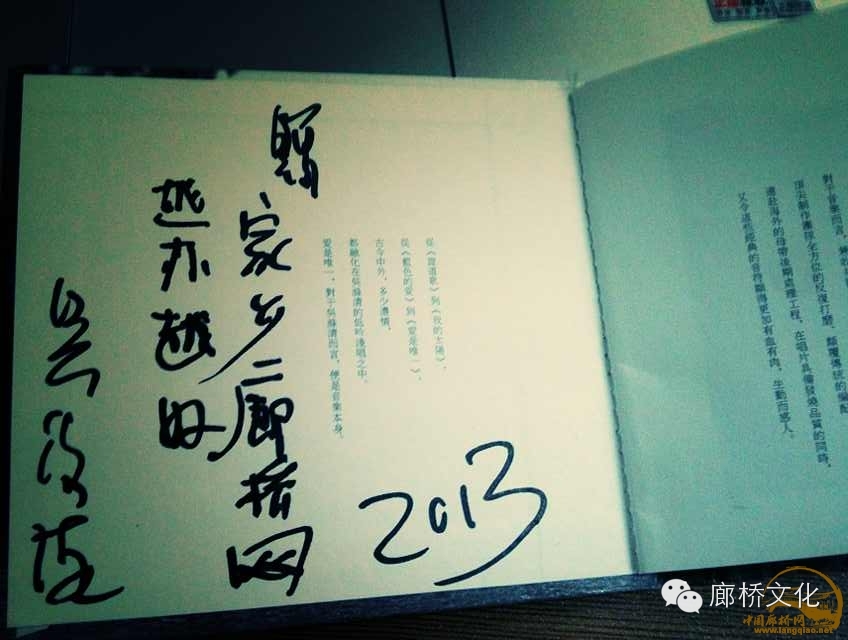 家乡
廊桥网
越办越好
2013
到《我的太陽》，
從《藍色的愛》到《愛是唯一》，
古今中外，多少濃情，
都融化在吳清的低吟淺唱之中。
愛是唯一，對于吳清而言，便是音樂本身。
對于音樂而言，
頂尖制作團隊全方位的反復打磨、顛覆傳統的編配
遠赴海外的母帶後期處理工程，在唱片具備發燒品質的同時，
又令這些經典的音符顯得更加有血有肉、生動而感人。
廊桥文化
中国廊桥网
www.langqiao.net